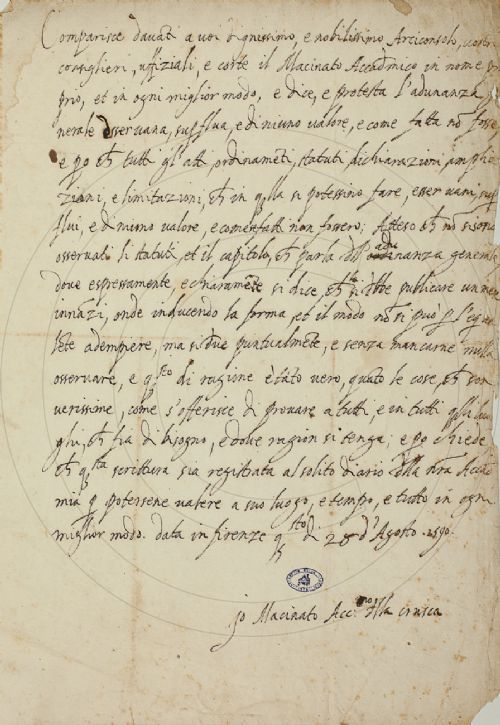 Comparisce davāti a voi dignissimo, e nobilissimo Arciconsolo, vostri
consiglieri, uffiziali, e corte il Macinato Accādmico in nome pro
prio, et in ogni miglior modo, e dice, e protesta l'adunanza ge
nerale esser vana, supflua, e di niuno valore, e come fatta nō fosse
e po ch tutti gl'atti, ordinamēti, statuti, dichiarazioni, amplia
zioni, e limitazioni, ch in qlla si potessino fare, esser vani, sup
flui, e di niuno valore, e come fatti non fossero; Atteso ch nō si sono
osservati li statuti, et il capitolo, ch parla dll' adunanza generale
dove espressamente, e chiaramēte si dice, ch si dbbe publicare un mese
innāzi, onde inducendo la forma, et il modo nō si può p l'equipol
lēte adempiere, ma si due puntualmēte, e senza mancarne nulla
osservare, e qsto di ragione è tāto vero, quāto le cose, ch son
verissime, come s'offerisce di provare a tutti, e in tutti qlli luo
ghi, ch fia di bisogno, e dove ragion si tenga; e po chiede
ch qsta scrittura sia registrata al solito diario dlla nrā Accā
mia p potersene valere a suo luogo, e tempo, e tutto in ogni
miglior modo. data in firenze qsto dì 28 d'Agosto 1590.
Io Macinato Acc.mo dlla crusca